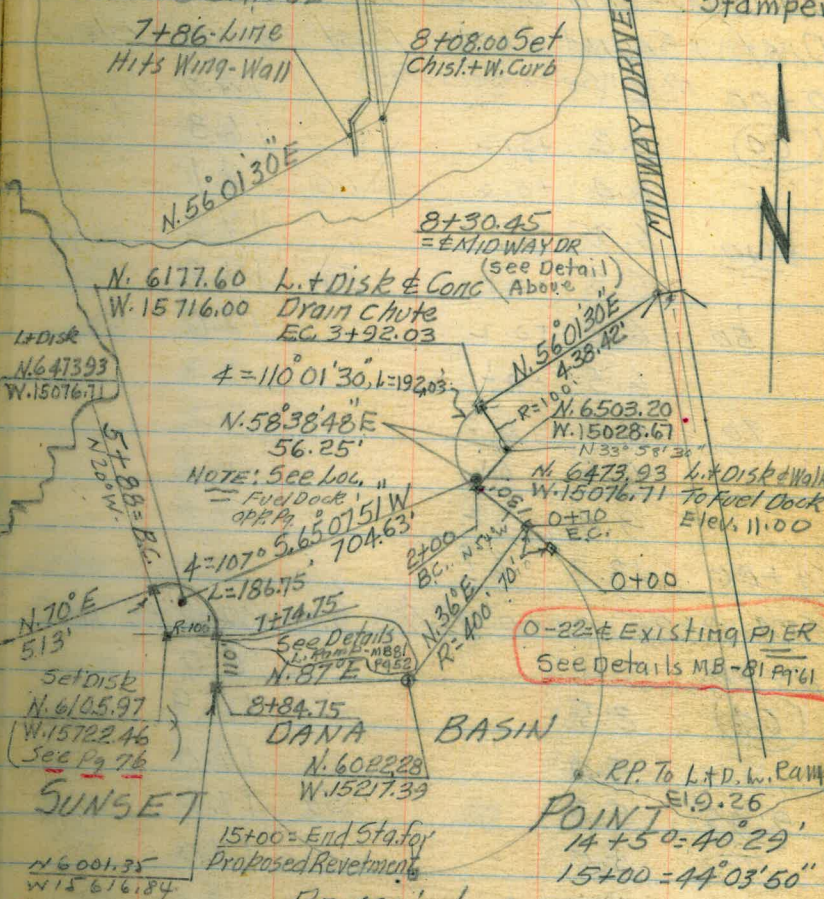 Stamped
7+86-Line
Hits Wing-Wall
8+08.00 Set
Chisl.+W.Curb
MIDWAY DRIVE
N.56°01'30"E
N
8+30.45
=₵MIDWAY DR
(See Detail
Above)
N. 6177.60
W.15716.00
L.+Disk ₵ Conc
Drain Chute
EC. 3+92.03
N.56°01'30"E
438.42'
L+Disk
N.647393
W.15076.71
4=110°01'30", L=192.03'
R=100'
N.6503.20
W.15028.67
N 33° 58' 30"
N.58°38'48"E
56.25'
NOTE: See Loc.
Fuel Dock
opp. Pg.
N. 6473.93
W.15076.71
L.+Disk ₵ Walk
To Fuel Dock
Elev. 11.00
5+88=B.C.
N 20° W.
S.65°07'51"W
704.63'
190'
0+70
E.C.
2+00
B.C.
0+00
4=107°
L=186.75'
N.70°E
513'
R=100'
7+74.75
See Details
L. Ramp-MB81
Pg52
110'
N.87°E
N.36°E
R=400'
70'
0-22=₵ Existing PIER
See Details MB-81 Pg.61
Set Disk
N.6105.97
W.15722.46
(See Pg 76)
8+84.75
DANA BASIN
N.602228
W.15217.39
SUNSET
POINT
R.P. To L+D. L. Ramp
El.9.26
15+00=End Sta. for
Proposed Revetment
14+50=40°29'
15+00=44°03'50"
N6001.35
W15616.84